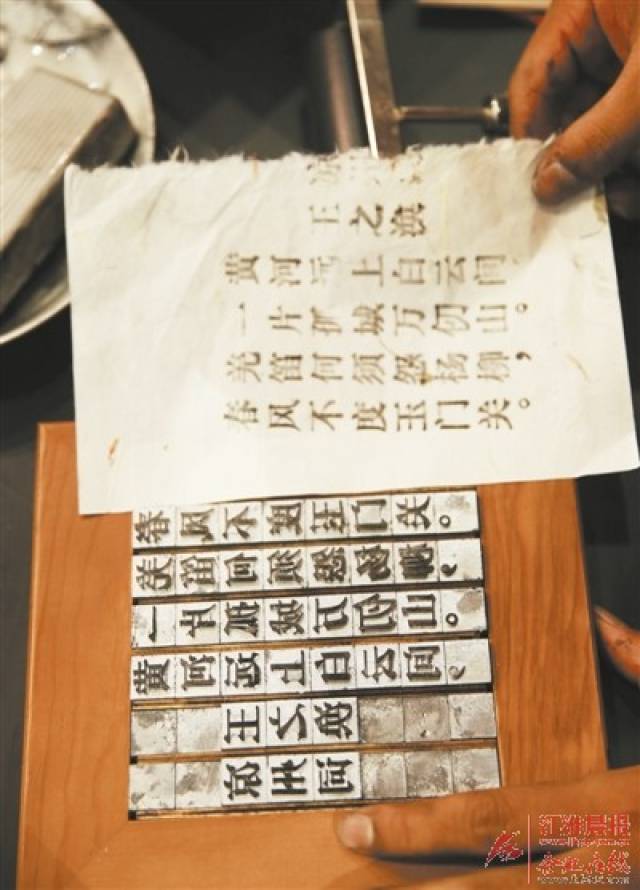 王之涣
黄河远上白云间
一片孤城万仞山。
羌笛何须怨杨柳，
春风不度玉门关。
春风不度玉门关。
羌笛何须怨杨柳，
一片孤城万仞山。
黄河远上白云间，
王之涣
凉州词
江淮晨报